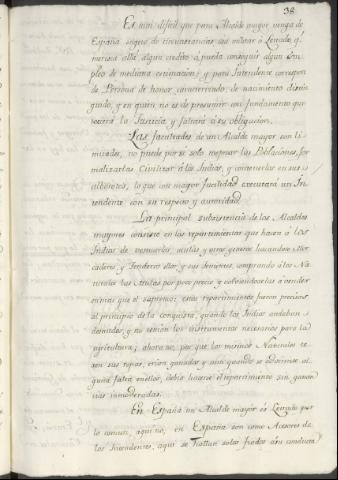 38
Es mui dificil que para Alcalde mayor venga de
España sugeto de circunstancias, sea militar ó Letrado, q.e
merezca allá algun credito, ó pueda conseguir algun em-
pleo de mediana estimacion; y para Intendente correspon-
de Persona de honor, caracterizado, de nacimiento distin-
guido, y en quien no es de presumir con fundamento que
torcerá la Justicia y faltará á su obligacion.
Las facultades de un Alcalde mayor son li-
mitadas, no puede por sí solo mejorar las Poblaciones, for-
malizarlas, Civilizar á los Indios, y contenerlos en sus
alborotos, lo que con mayor facilidad executará un In-
tendente con su respeto y autoridad.
La principal subsistencia de los Alcaldes
mayores consiste en los repartimientos que hacen á los
Indios de vestuarios, mulas y otros generos haciendose Mer-
caderes, y Tenderos ellos y sus tenientes, comprando á los Na-
turales los frutos por poco precio y cobrandoselas a
que el supremo: estos repartimientos fueron precisos
al principio de la conquista, quando los Indios andaban
desnudos, y no tenían los instrumentos necesarios para la
agricultura; ahora no, por que los mismos Naturales te-
xen sus ropas, crian ganados y aun quando se advirtiese al-
guna falta en ellos, debia hacerse el repartimiento sin ganan-
cias inmoderadas.
En España un Alcalde mayor es Letrado por
lo comun, aqui no; en España son como Asesores de
los Intendentes, aqui se hallan solos fiados á su conducta